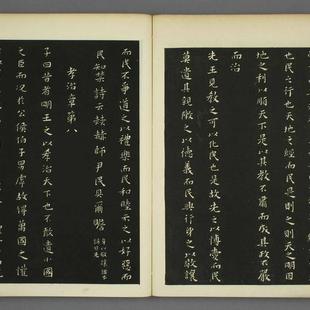 也民之行也天地之經而民是則之則天之明因
地之利以順天下是以其教不肅而成其政不嚴
而治
先王見教之可以化民也是故先之以博愛而民
莫遺其親陳之以德義而民興行先之以敬讓
而民不爭道之以禮樂而民和睦示之以好惡而
民知禁詩云赫赫師尹民具爾瞻
孝治章第八
子曰昔者明王之以孝治天下也不敢遺小國
之臣而況於公侯伯子男虖故得萬國之懽